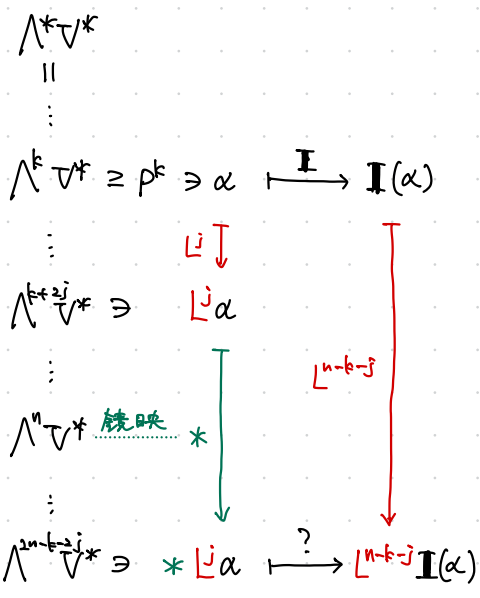 Λ*V*
||
⋮
Λ^k V* ≥ P^k ∋ α ⟼ 𝐈(α)
𝐈
⋮ L^j
Λ^{k+2j}V* ∋ L^jα
⋮ L^{n-k-j}
Λ^nV* 镜映 *
⋮
?
Λ^{2n-k-2j}V* ∋ * L^jα ⟼ L^{n-k-j} 𝐈(α)